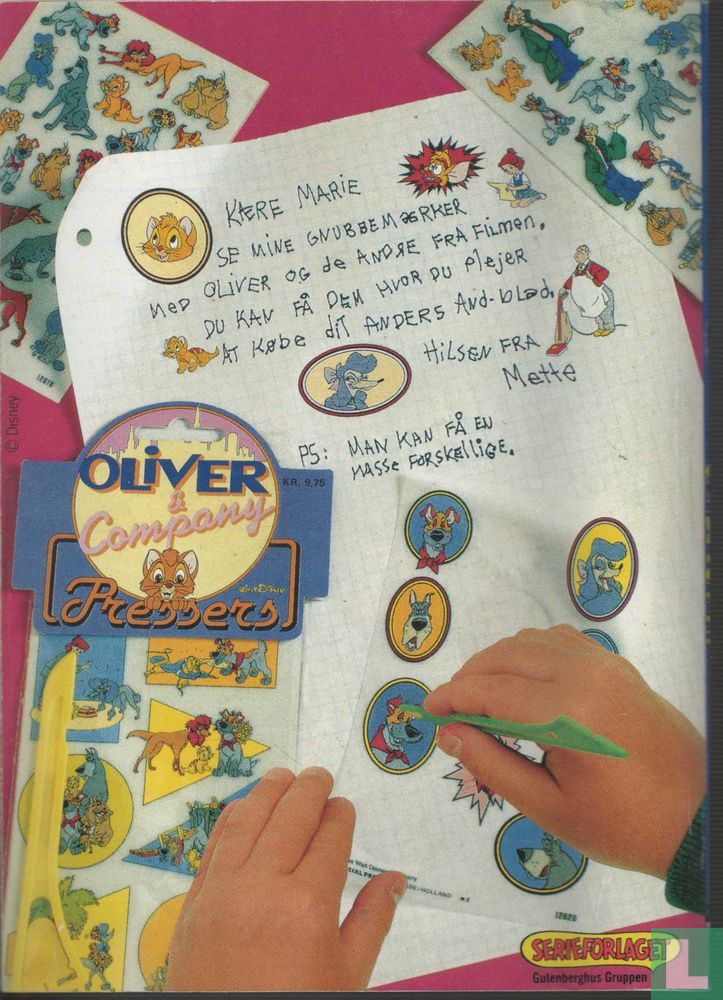 KÆRE MARIE
SE MINE GNUBBEMÆRKER
MED OLIVER OG de ANDRE FRA FILMEN.
DU KAN FÅ DEM HVOR DU Plejer
AT KØBe diT ANDERS And-blad.
HILSEN FRA
Mette
PS: MAN KAN FÅ EN
MASSE FORSKELLIGE.
12618
© Disney
OLIVER
&
Company
KR. 9,75
WALT DISNEY
Pressers
12620
SERIEFORLAGET
Gutenberghus Gruppen
L